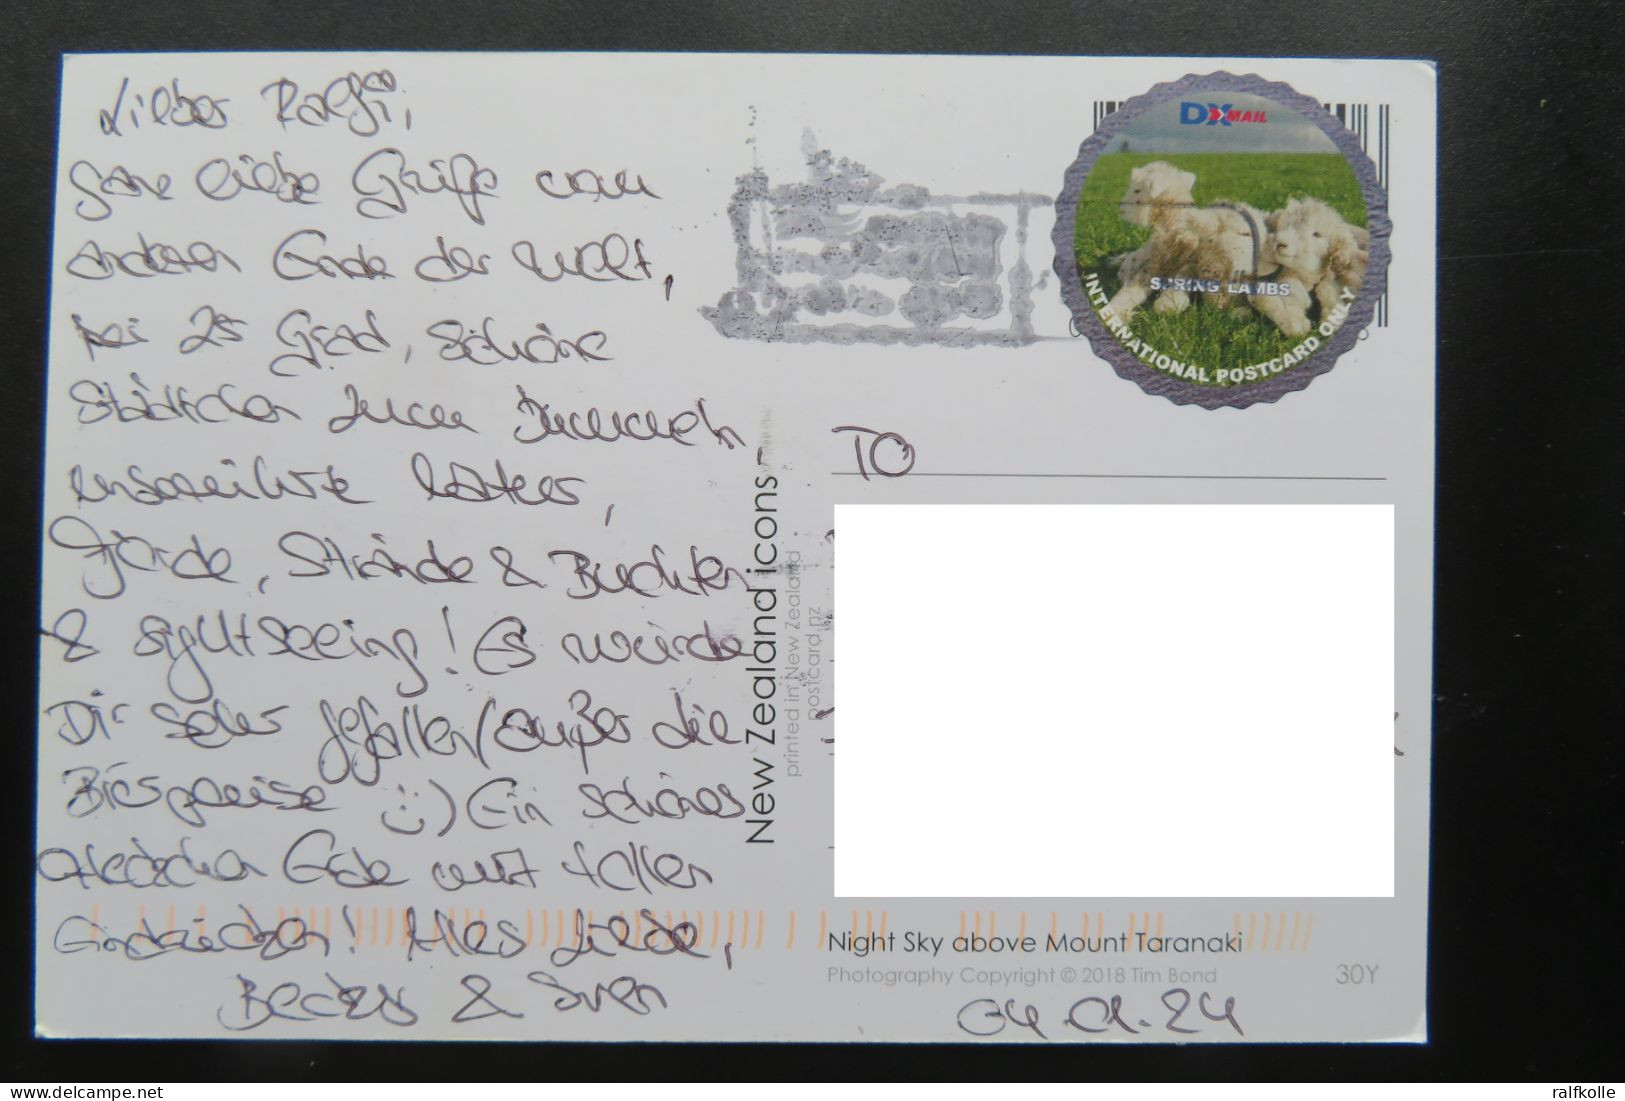 Lieber Ralfi,
ganz liebe Grüße vom
anderen Ende der Welt,
bei 25 Grad, schöne
Städtchen zum Bummeln,
unsaniert,
Fjorde, Strände & Buchten
& sightseeing! Es würde
Dir sehr gefallen (außer die
Bierpreise :-) Ein schönes
Fleckchen Erde mit tollen
Eindrücken! Alles Liebe,
Becky & Sven
DX MAIL
SPRING LAMBS
INTERNATIONAL POSTCARD ONLY
TO
New Zealand icons
printed in New Zealand
postcard.nz
Night Sky above Mount Taranaki
Photography Copyright © 2018 Tim Bond 30Y
04.01.24
ralfkolle
www.delcampe.net